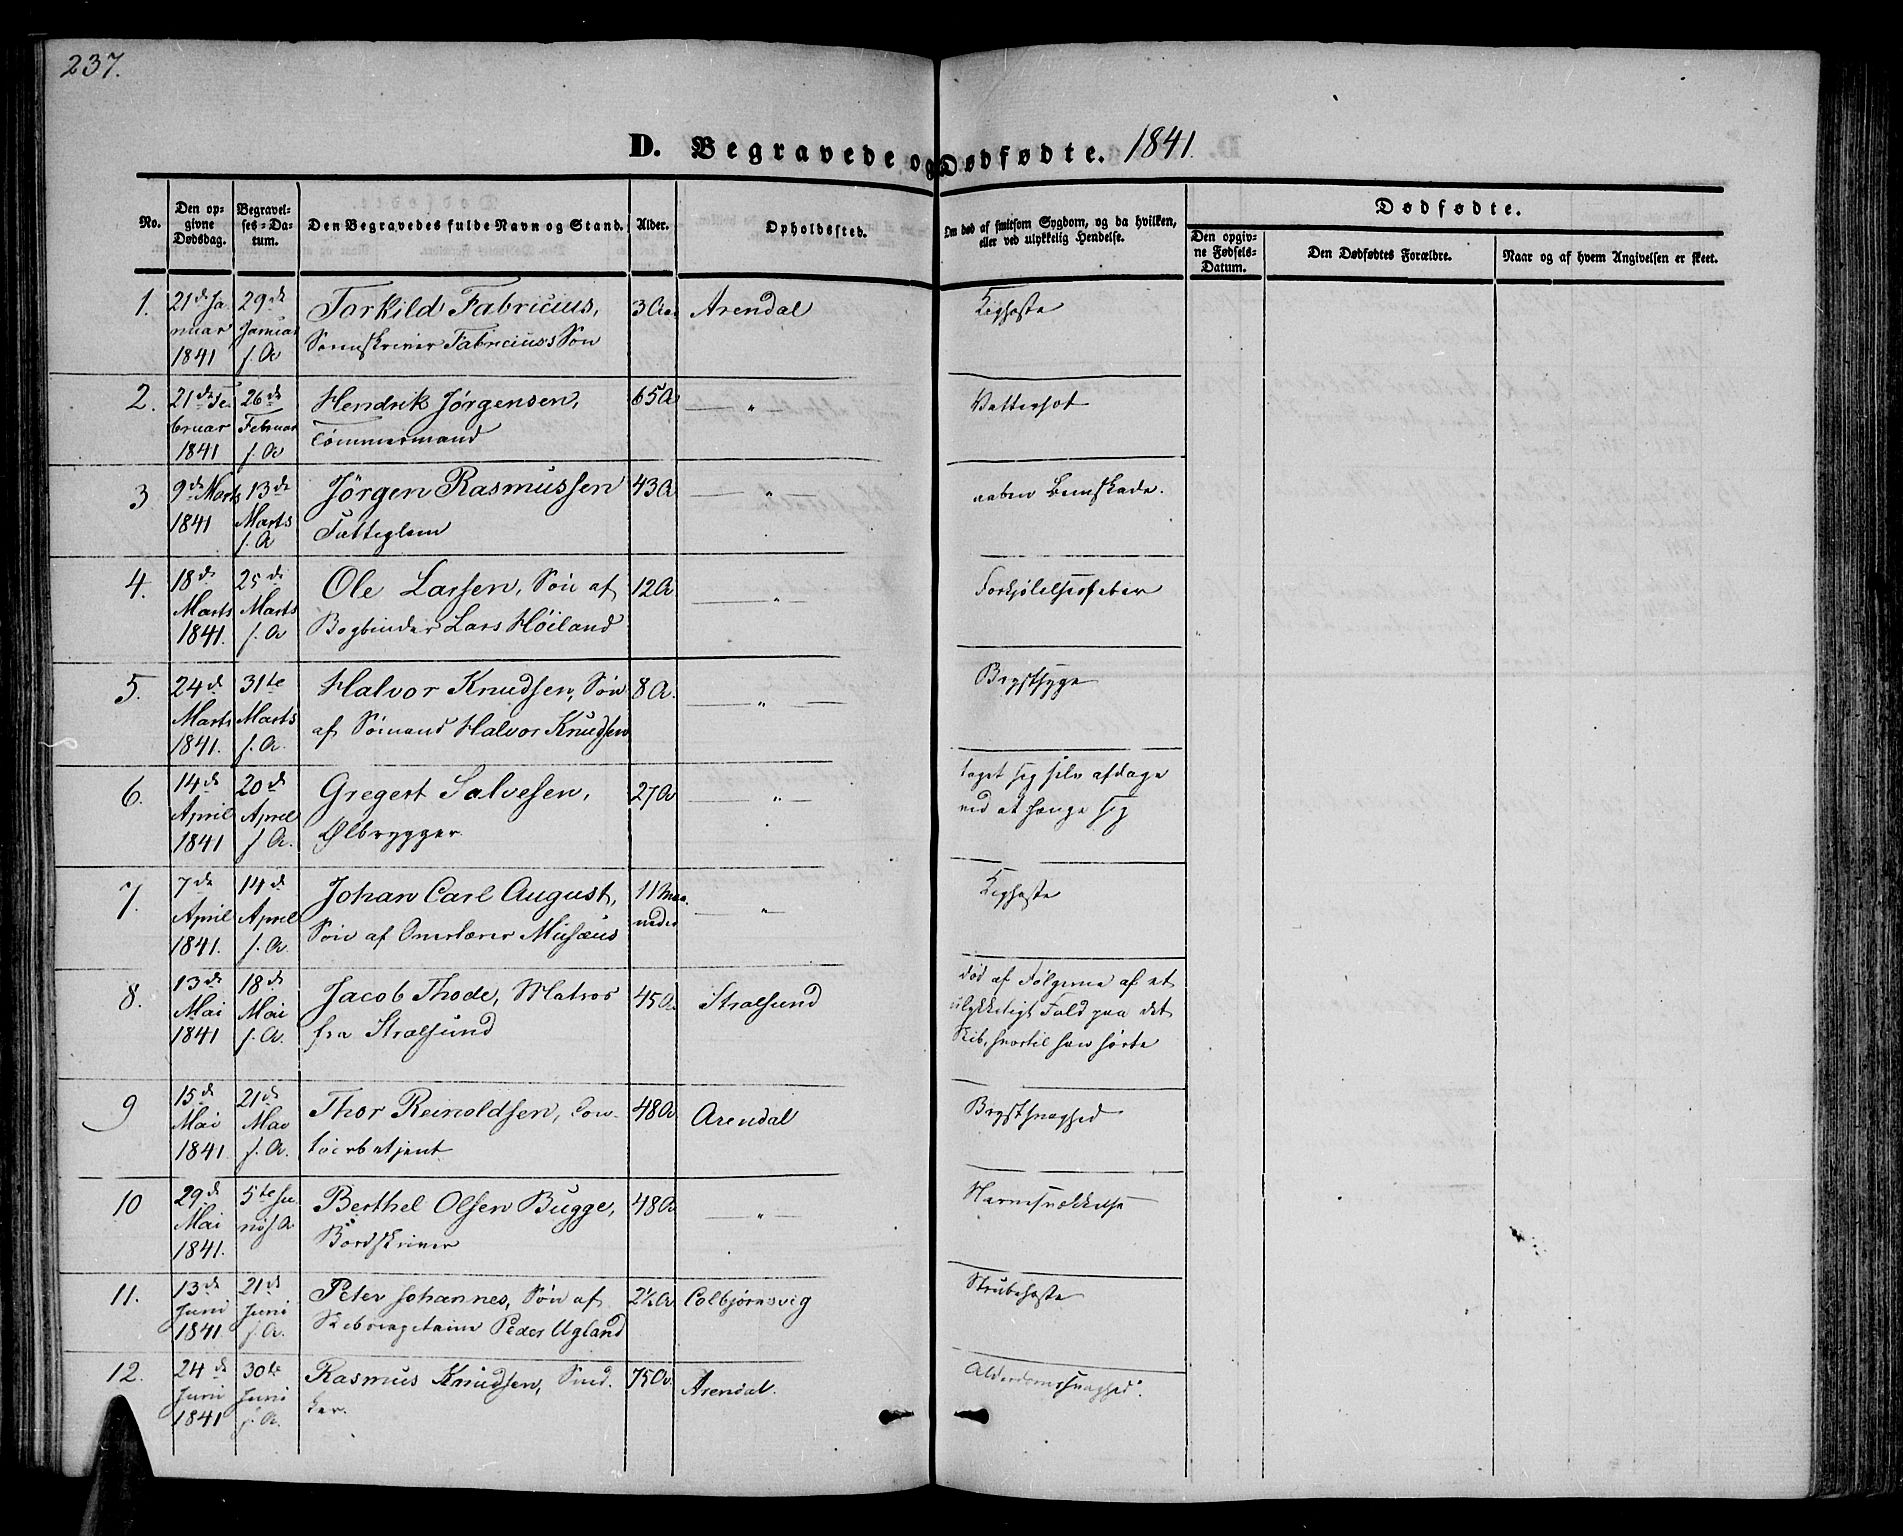 237.
D. Begravede og Dødfødte. 1841.
No.
Den opgivne Dødsdag.
Begravelses-Datum.
Den Begravedes fulde Navn og Stand.
Alder.
Opholdssted.
Om død af smitsom Sygdom, og da hvilken, eller ved ulykkelig Hendelse.
Dødfødte.
Den opgivne Fødsels-Datum.
Den Dødfødtes Forældre.
Naar og af hvem Angivelsen er skeet.
1. 21de Ja- 29de Torkild Fabricius, 3 Aar Arendal Kighoste
nuar Januar Fabriciuss Søn
1841 s. A
2. 21de Fe- 26de Hendrik Jørgensen, 65 A — " — Vattersot
bruar Februar Tømmermand
1841 s. A
3 9de Marts 13de Jørgen Rasmussen 43 A — " — aaben Beenskade.
1841 Marts Fattiglem
s. A
4. 18de 25de Ole Larsen, Søn af 12 A — " — Forkjølelsesfeber
Marts Marts Bogbinder Lars Høiland
1841. s. A
5. 24de 31te Halvor Knudsen, Søn 8 A. — " — Brystsyge
Marts Marts af Sømand Halvor Knudsen
1841. s. A.
6. 14de 20de Gregert Salvesen, 27 A — " — taget sig selv afdage
April April Ølbrygger ved at hænge sig
1841 s A.
7. 7de 14de Johan Carl August, 11 Maa- — " — Kighoste
April April Søn af Overlærer Musæus neder
1841. s. A.
8. 13de 18de Jacob Thode, Matros 45 A. Stralsund død af Følgerne af et
Mai Mai fra Stralsund ulykkeligt Fald paa det
1841 s. A. Skib, hvortil han hørte
9 15de 21de Thor Reinoldsen, Con- 48 A Arendal Brystsvaghed
Mai Mai toirbetjent
1841. s. A.
10 29de 5te Ju- Berthel Olsen Bugge, 48 A — " — Nervesvækkelse
Mai ni s A Bordskriver
1841.
11. 13de 21de Peter Johannes, Søn af 2½ A Colbjørnsvig Strubehoste
Juni Juni Skibscapitain Peder Ugland
1841. s. A.
12. 24de 30te Rasmus Knudsen, Sned- 75 A. Arendal. Alderdomssvaghed.
Juni Juni ker.
1841 s. A.